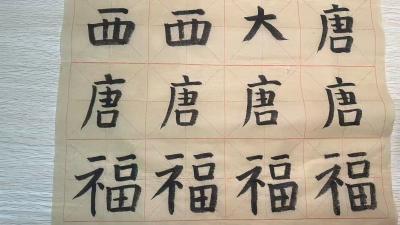 西西大唐
唐唐唐唐
福福福福